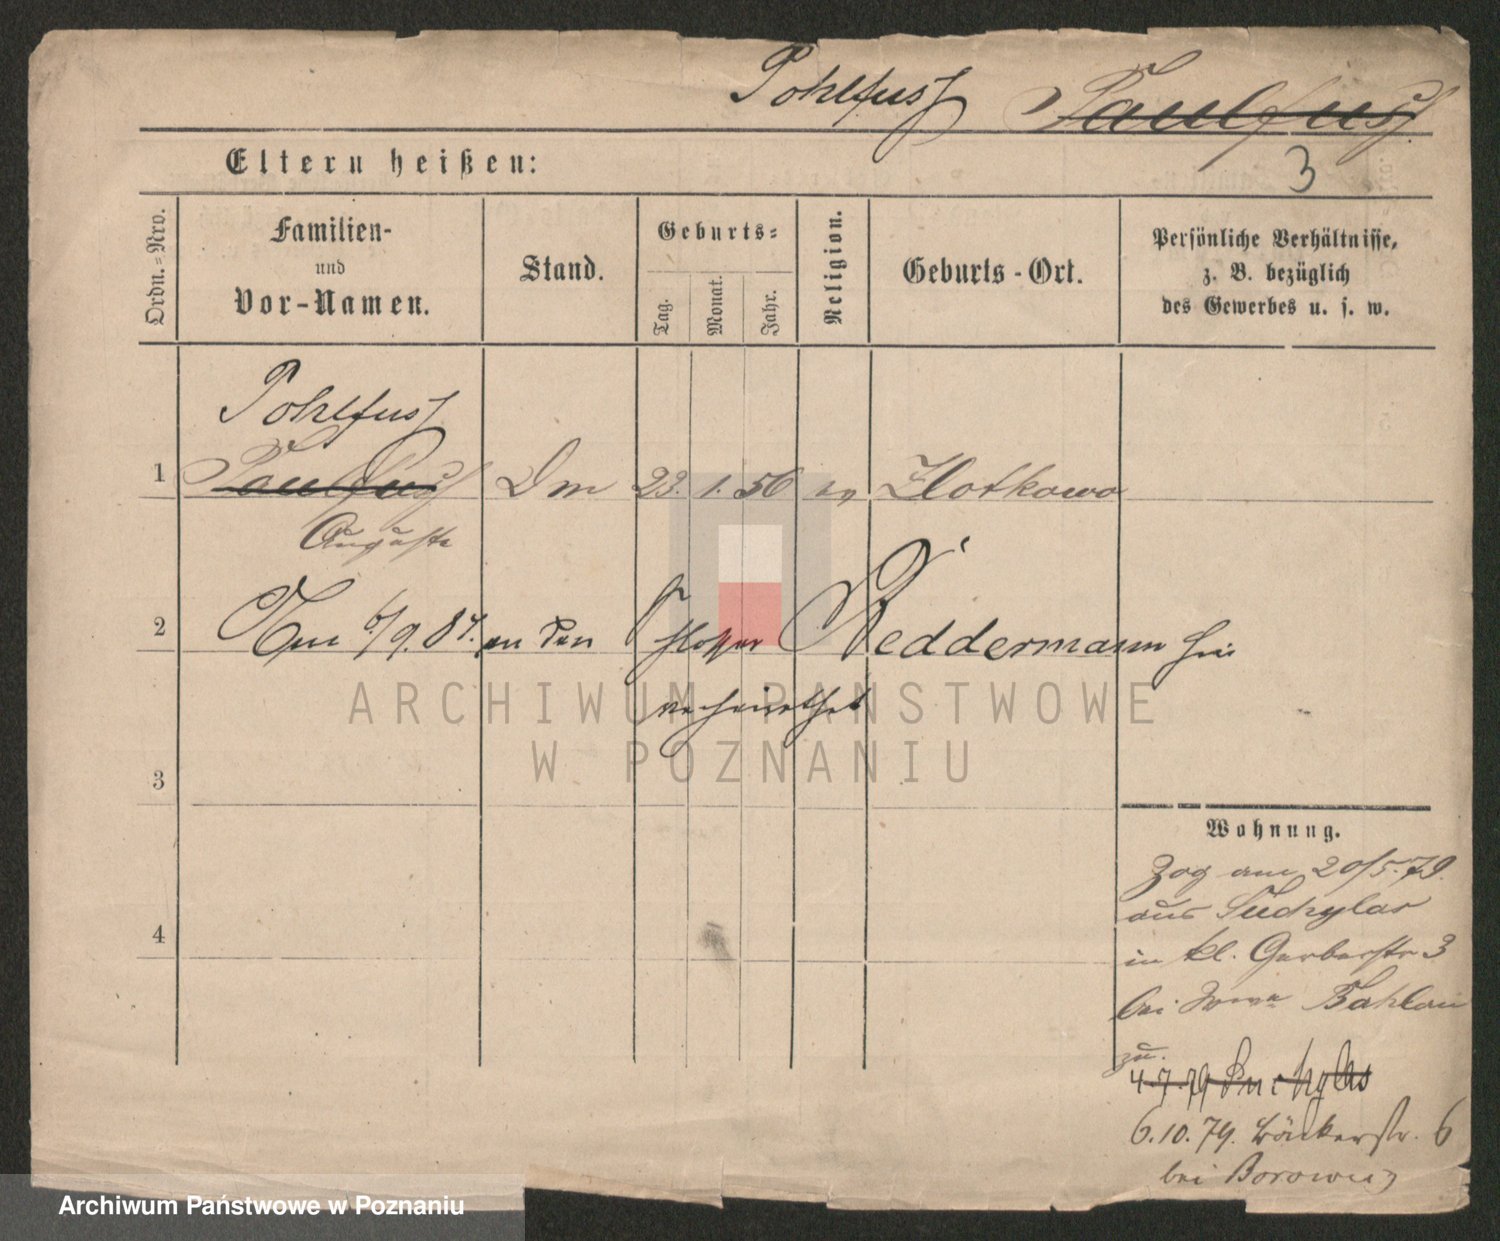 Pohlfuss Paulfuss
Eltern heißen:
3
Ordn.=Nro.
Familien-
und
Vor-Namen.
Stand.
Geburts=
Tag.
Monat.
Jahr.
Religion.
Geburts-Ort.
Persönliche Verhältnisse,
z. B. bezüglich
des Gewerbes u. s. w.
Pohlfuss
1 Paulfuss Dm 23. 1. 56 ev Zlotkowo
Auguste
2 Am 6/9.87. an den Schlosser Reddermann hier
verheirathet
3
Wohnung.
Zog am 20/5.79.
aus Suchylas
4
in kl. Gerberstr 3
bei Wwe
zu.
4.7.79 Suchylas
6.10.79. Bäckerstr. 6
bei
ARCHIWUM PAŃSTWOWE
W POZNANIU
Archiwum Państwowe w Poznaniu